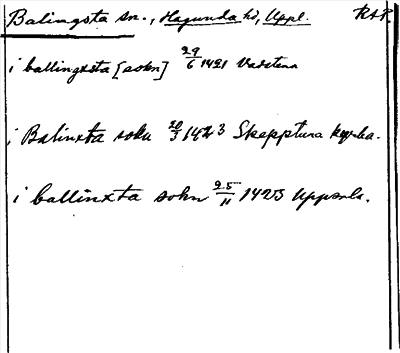 Balingsta sn., Hagunda hd, Uppl. RAP.
i ballingxsta [sokn] 29/6 1421 Vadstena
i Balinxta sokn 20/3 1423 Skepptuna kyrka.
i ballinxta sokn 25/11 1423 Uppsala.